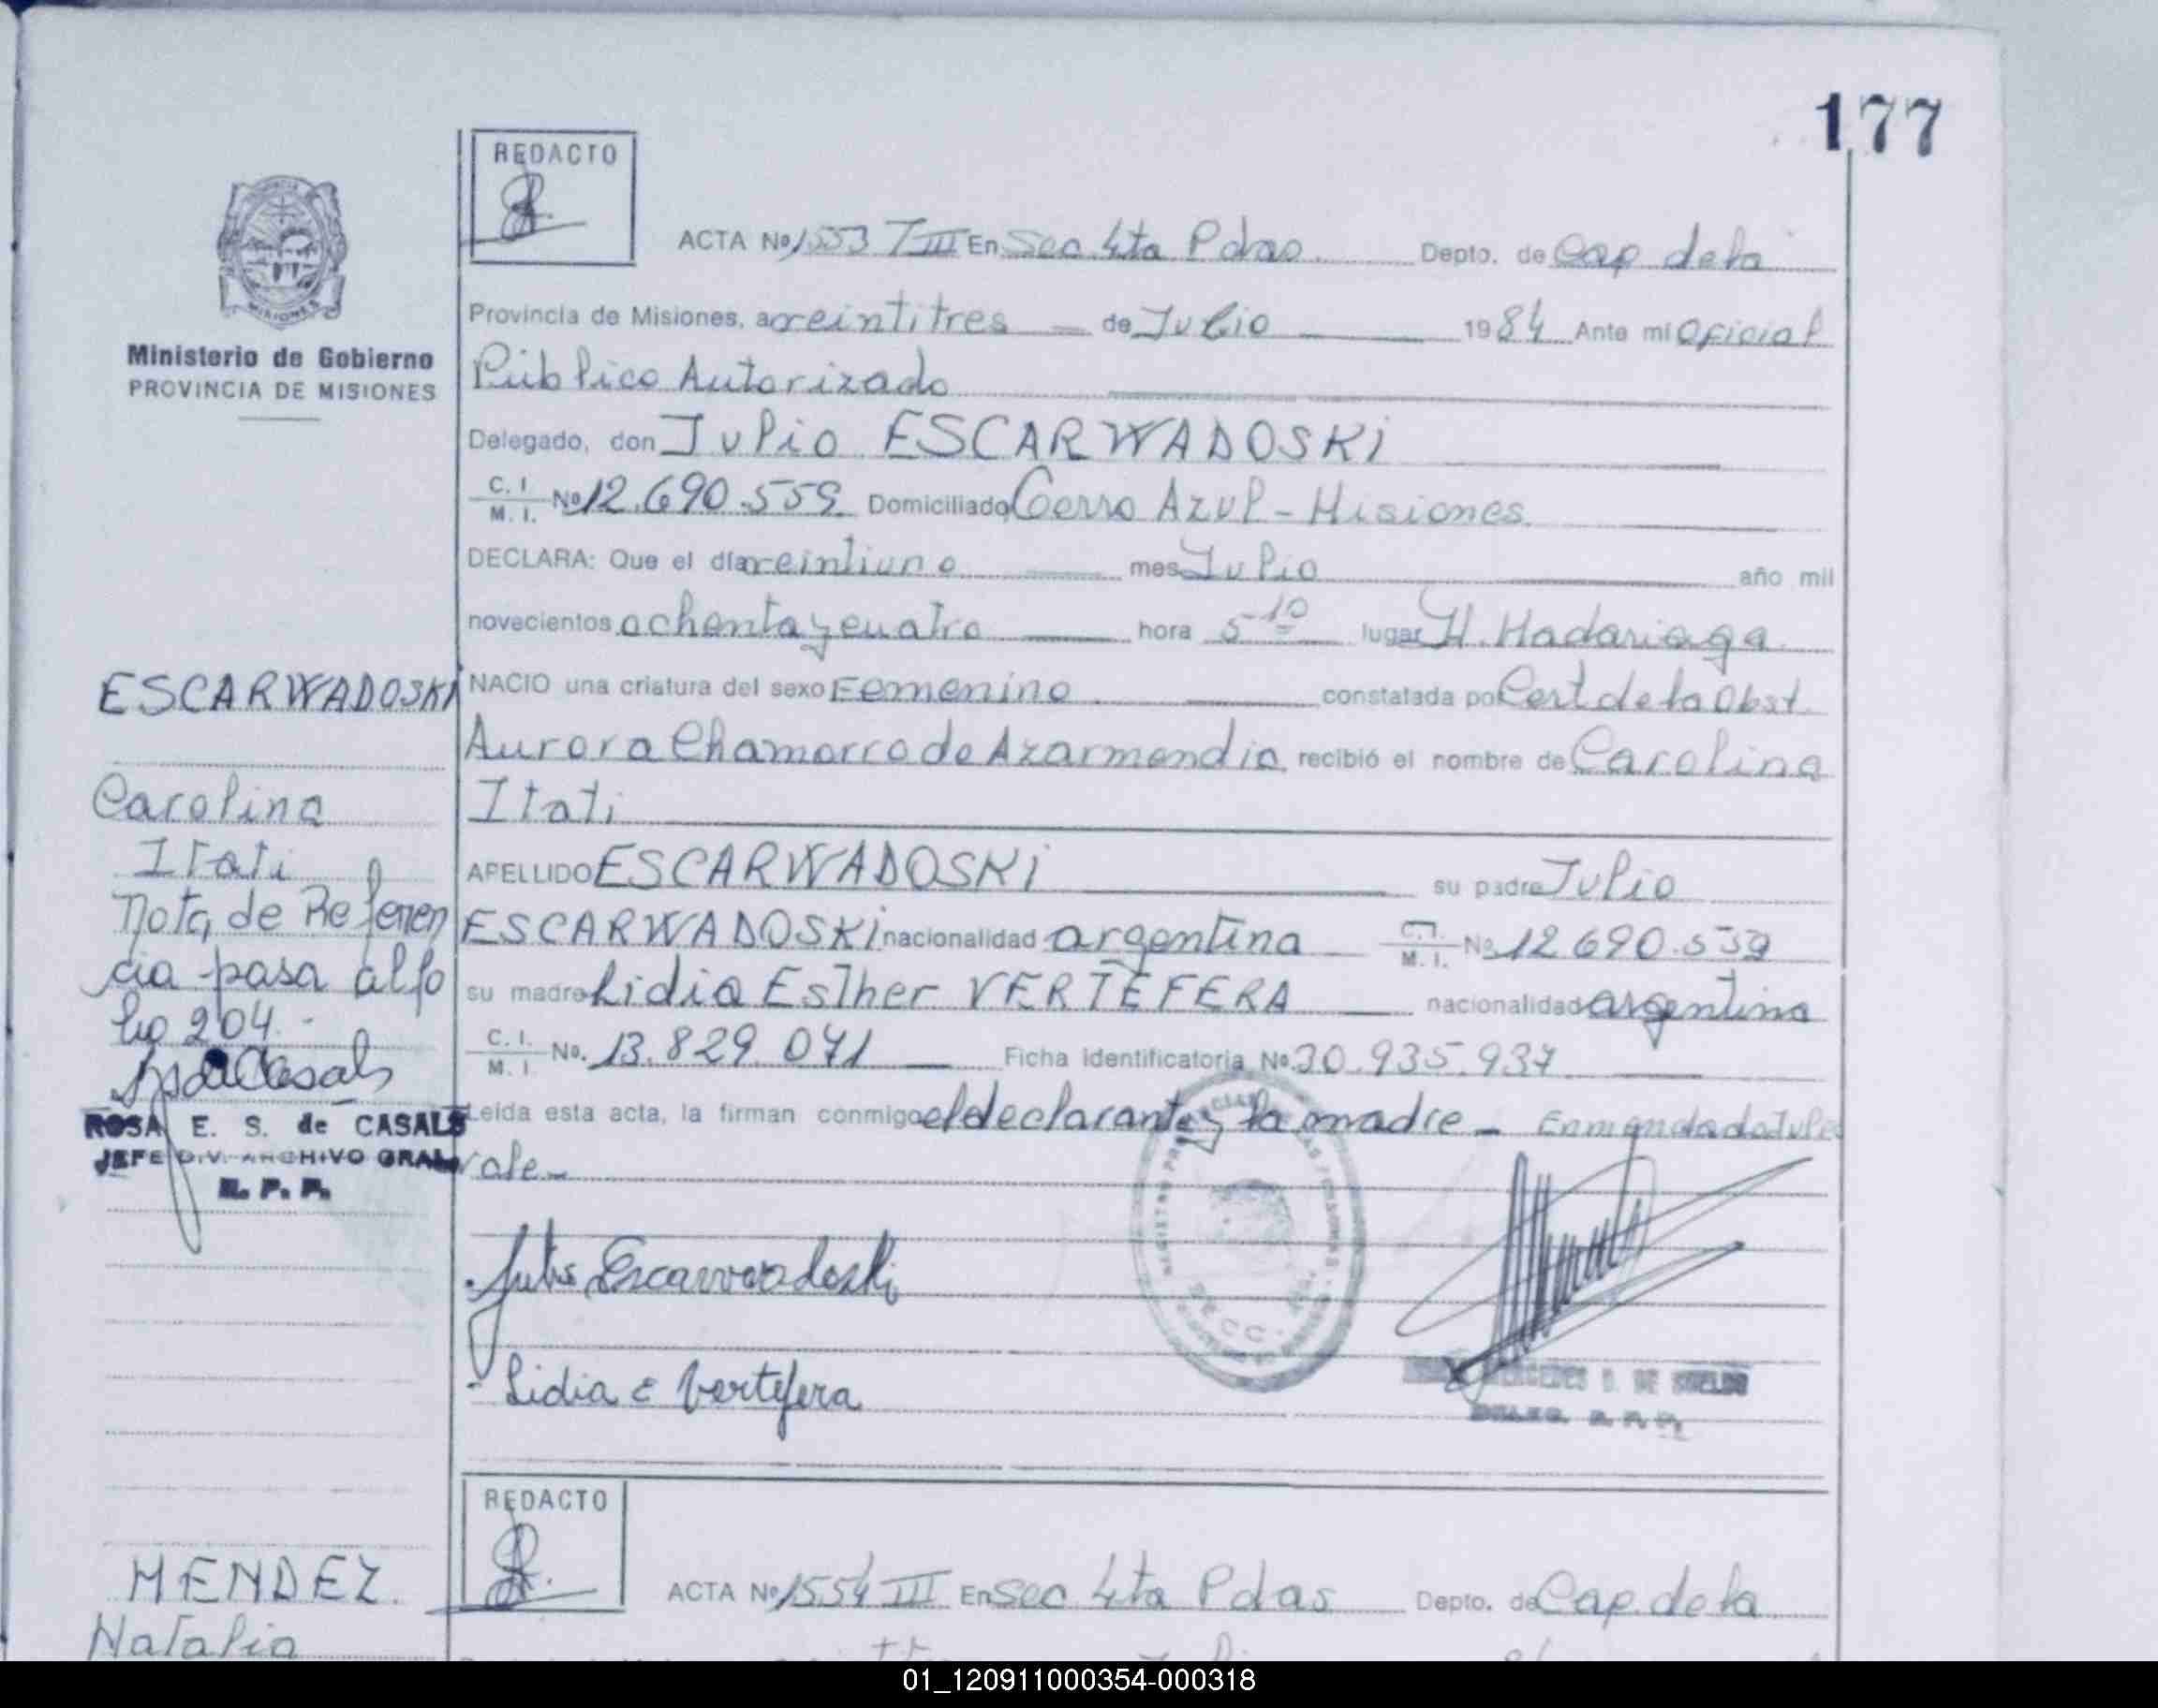 177
REDACTO
ACTA Nº 1553 T III En Sec. 4ta Pdas. Depto. de Cap de la
Provincia de Misiones, a veintitres de Julio 1984 Ante mi Oficial
Público Autorizado
Delegado, don Julio ESCARWADOSKi
C. I. M. I. Nº 12.690.559 Domiciliado Cerro Azul - Misiones
DECLARA: Que el día veintiuno mes Julio año mil
novecientos ochenta y cuatro hora 5-10 lugar H. Madariaga
NACIO una criatura del sexo Femenino constatada por Cert de la Obst.
Aurora Chamorro de Azarmendia recibió el nombre de Carolina
Itati
APELLIDO ESCARWADOSKi su padre Julio
ESCARWADOSKi nacionalidad argentina C. I. M. I. Nº 12.690.559
su madre Lidia Esther VERTEFERA nacionalidad argentina
C. I. M. I. No. 13.829.071 Ficha identificatoria Nº 30.935.937
Leída esta acta, la firman conmigo el declarante y la madre - Enmendado Julio
vale-
Julio Escarwadoski
Lidia E Vertefera
MERCEDES
Ministerio de Gobierno
PROVINCIA DE MISIONES
ESCARWADOSKI
Carolina
Itati
Nota de Referen
cia pasa al fo
lio 204.-
ROSA E. S. de CASALS
JEFE DIV. ARCHIVO GRAL
R. P. P.
REDACTO
ACTA Nº 1554 III En Sec 4ta Pdas Depto. de Cap. de la
MENDEZ.
Natalia
01_120911000354-000318